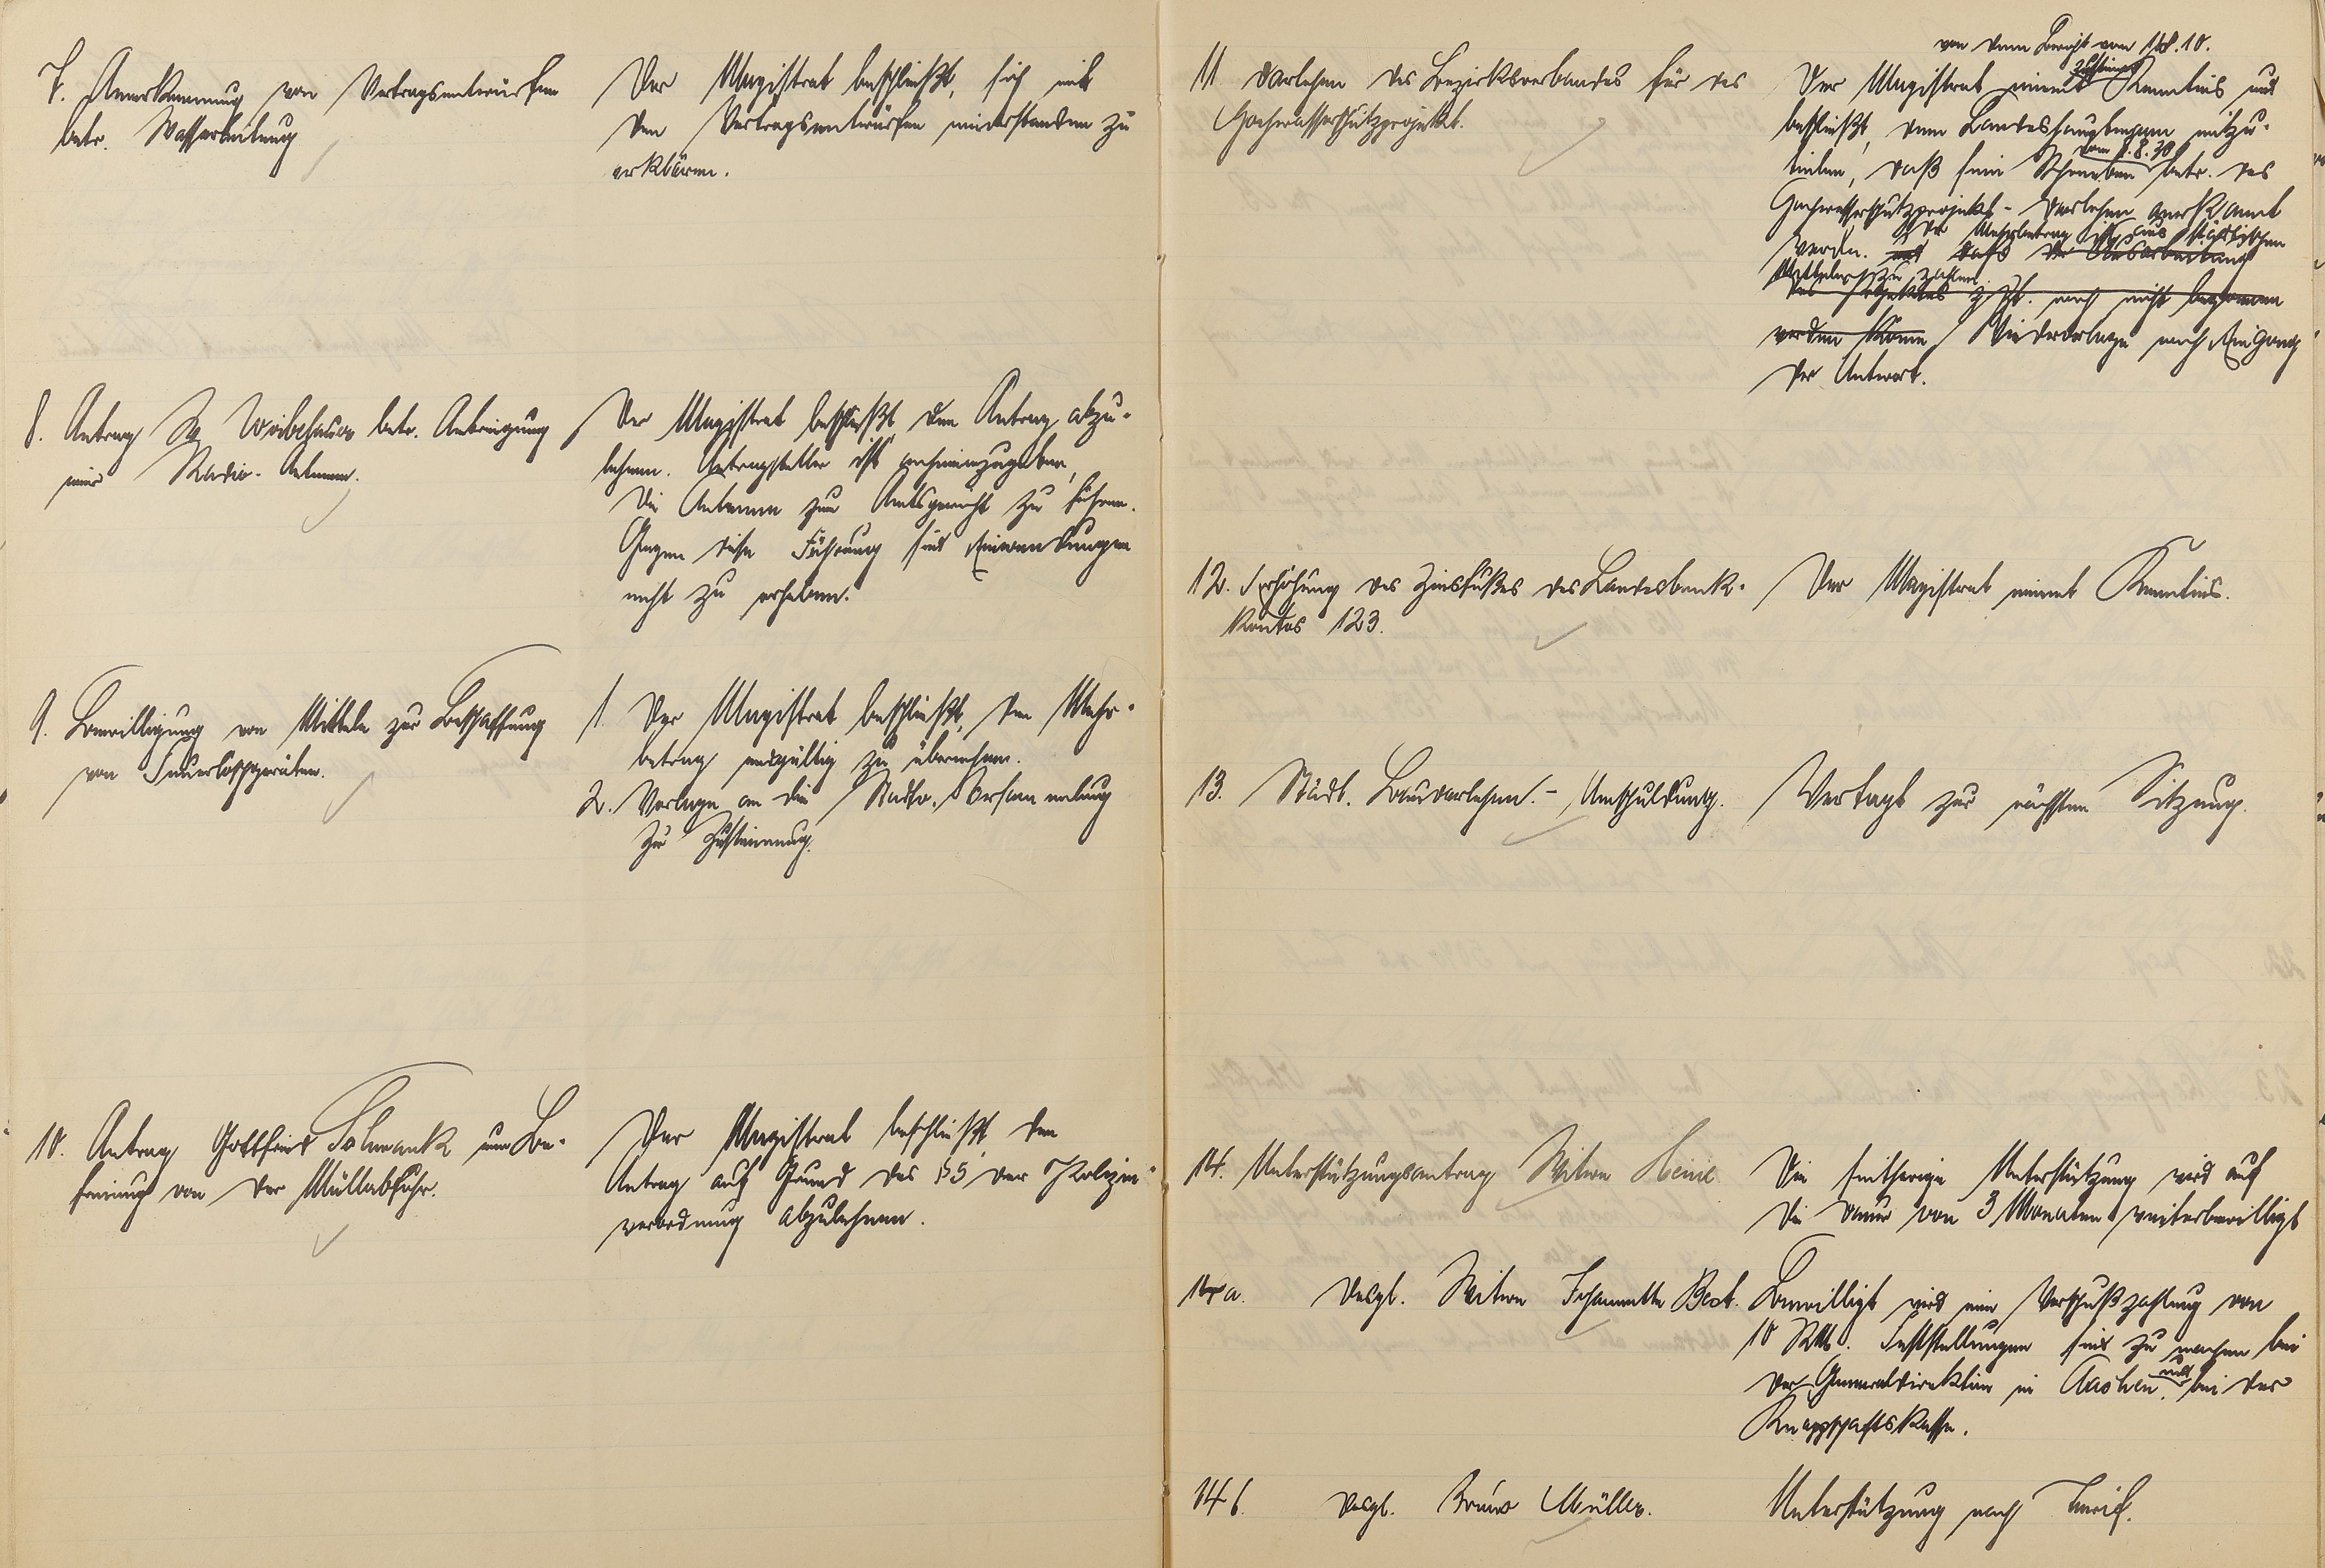 7. Anerkennung von Vertragsentwürfen
betr. Wasserleitung
Der Magistrat beschließt, sich mit
den Vertragsentwürfen einverstanden zu
erklären.
8. Antrag Weibehauer betr. Anbringung
einer Radio-Antenne.
Der Magistrat beschließt den Antrag abzu-
lehnen. Antragsteller ist anheimzugeben,
die Antenne zum Amtsgericht zu führen.
Gegen diese Führung sind Einwendungen
nicht zu erheben.
9. Bewilligung von Mitteln zur Beschaffung
von Feuerlöschgeräten.
1. Der Magistrat beschließt, den Mehr-
betrag endgültig zu übernehmen.
2. Vorlage an die Stadtv. Versammlung
zur Zustimmung.
10. Antrag Gottfried Schwank um Be-
freiung von der Müllabfuhr.
Der Magistrat beschließt, den
Antrag auf Grund des §5 der Polizei-
verordnung abzulehnen.
11. Darlehen des Bezirksverbandes für das
Hochwasserschutzprojekt.
von dem Bericht vom
zustimmend
Der Magistrat nimmt Kenntnis und
beschließt, dem Landeshauptmann mitzu-
vom 8.8.30
teilen, daß sein Schreiben betr. des
Hochwasserschutzprojekt-Darlehen anerkannt
Der Mehrbetrag ist aus städtischen
werde. und daß der Ausarbeitung
Mitteln zu zahlen.
des Projektes z. Zt. noch nicht begonnen
werden könne Wiedervorlage nach Eingang
der Antwort.
12. Erhöhung des Zinsfußes des Landesbank-
kontos 123.
Der Magistrat nimmt Kenntnis.
13. Städt. Baudarlehen. - Umschuldung.
Vertagt zur nächsten Sitzung.
14. Unterstützungsantrag Witwe Heinz
Die seitherige Unterstützung wird auf
die Dauer von 3 Monaten weiterbewilligt
14a. Desgl. Witwe Johannette Best.
Bewilligt wird eine Vorschußzahlung von
10 RM. Feststellungen sind zu machen bei
und
der Generaldirektion in Aachen bei der
Knappschaftskasse.
14b. Desgl. Bruno Müller.
Unterstützung nach Tarif.